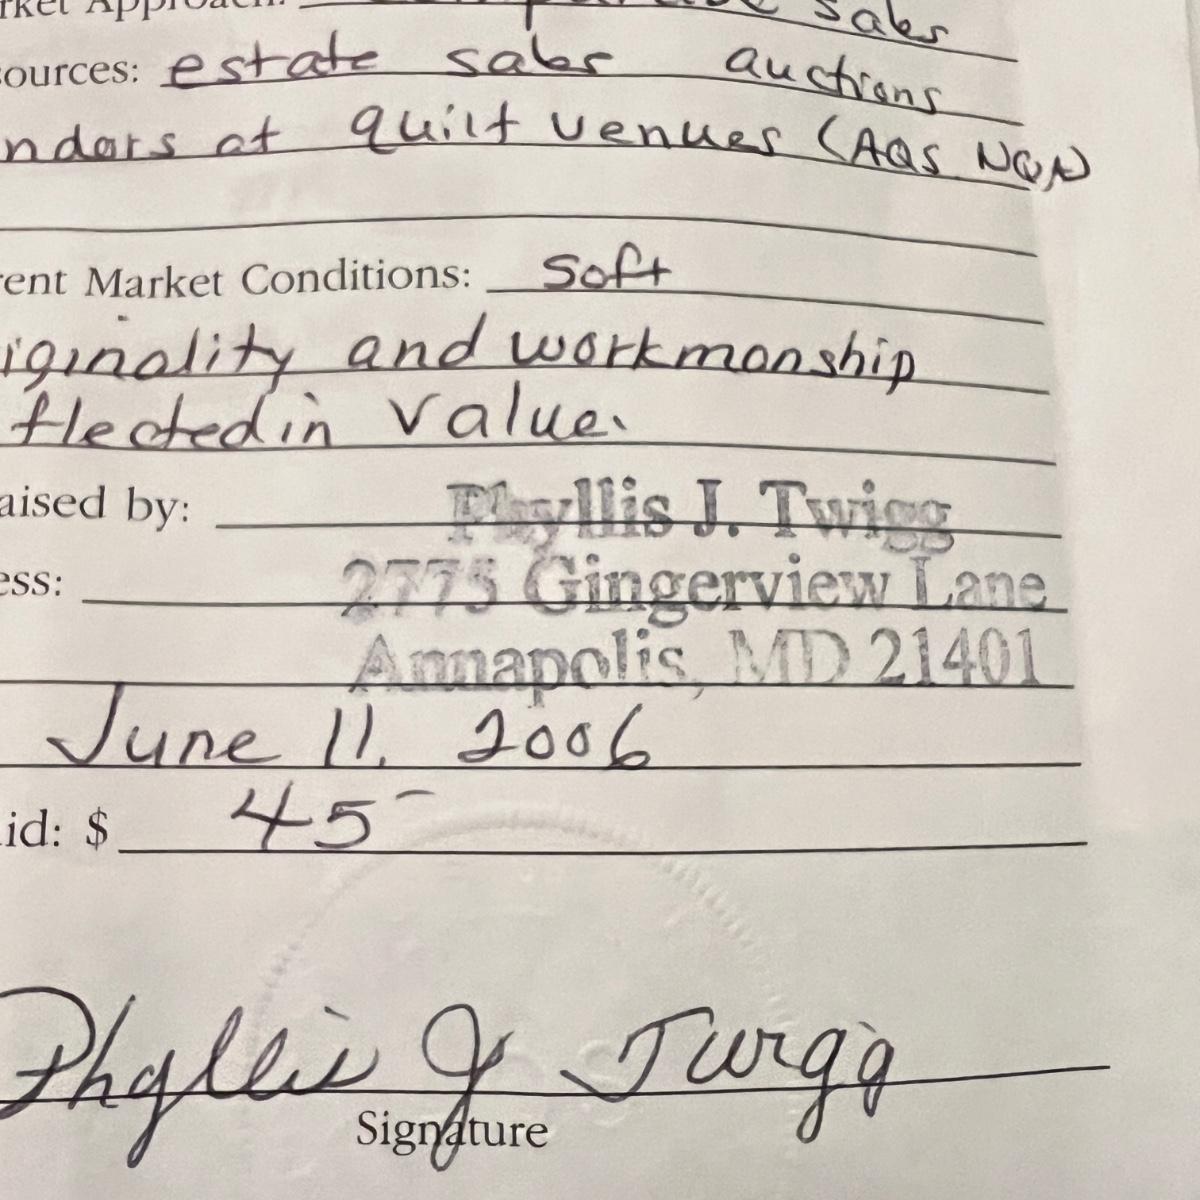 rket Approach: sales
ources: estate sales auctions
ndors at quilt venues (AQS NQA)
rent Market Conditions: soft
iginality and workmanship
flected in value.
aised by: Phyllis J. Twigg
ess: 2775 Gingerview Lane
Annapolis, MD 21401
June 11, 2006
id: $ 45
Phyllis J Twigg
Signature